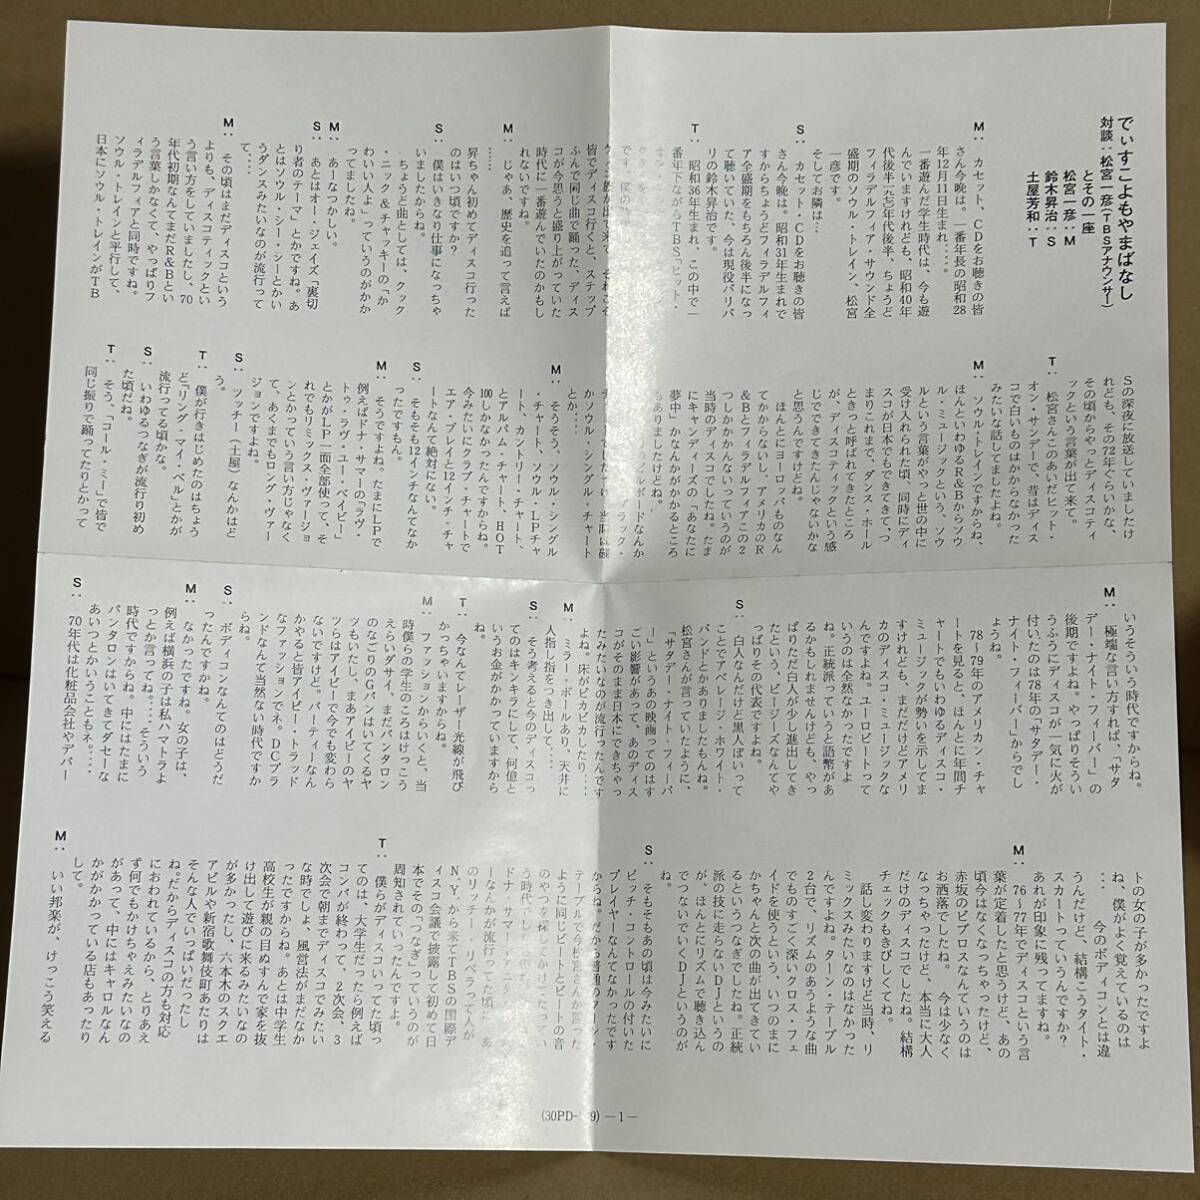 でぃすこよもやまばなし
対談：松宮一彦（TBSアナウンサー）
とその一座
松宮一彦：M
鈴木昇治：S
土屋芳和：T
M： カセット、CDをお聴きの皆
さん今晩は。一番年長の昭和28
年12月11日生まれ‥‥。
一番遊んだ学生時代は、今も遊
んでいますけれども、昭和40年
代後半―元70年代後半、ちょうど
フィラデルフィア・サウンド全
盛期のソウル・トレイン、松宮
一彦です。
そしてお隣は…
S： カセット・CDをお聴きの皆
さん今晩は。昭和31年生まれで
すからちょうどフィラデルフィ
ア全盛期をもちろん後半になっ
て聴いていた、今は現役バリバ
リの鈴木昇治です。
T： 昭和36年生まれ、この中で一
番年下ながらTBS「ヒット・
皆でディスコ行くと、ステップ
ふんで同じ曲で踊った、ディス
コが今思うと盛り上がっていた
時代に一番遊んでいたのかもし
れないですね。
M： じゃあ、歴史を追って言えば
‥‥‥
昇ちゃん初めてディスコ行った
のはいつ頃ですか？
S： 僕はいきなり仕事になっちゃ
いましたからね。
ちょうど曲としては、クック
・ニック＆チャッキーの「か
わいい人よ」っていうのがかか
ってましたね。
M： あーなつかしい。
S： あとはオー・ジェイズ「裏切
り者のテーマ」とかですね。あ
とはソウル・シー・シーとかい
うダンスみたいなのが流行って
て‥‥
M： その頃はまだディスコという
よりも、ディスコティックとい
う言い方をしていましたし、70
年代初期なんてまだR&Bとい
う言葉しかなくて、やっぱりフ
ィラデルフィアと同時ですね。
ソウル・トレインと平行して、
日本にソウル・トレインがTB
Sの深夜に放送していましたけ
れども、その72年ぐらいかな、
その頃からやっとディスコティ
ックという言葉が出て来て。
T： 松宮さんこのあいだヒット・
オン・サンデーで、昔はディス
コで白いものはかからなかった
みたいな話してましたよね。
M： ソウル・トレインですからね、
ほんといわゆるR&Bからソウ
ル・ミュージックという、ソウ
ルという言葉がやっと世の中に
受け入れられた頃、同時にディ
スコが日本でもできてって、そ
まりこれまで、ダンス・ホール
ときっと呼ばれてきたところ
が、ディスコティックという感
じでできてきたんじゃないかな
と思うんですけどね。
ほんとにヨーロッパものなん
てかからないし、アメリカのR
&Bとフィラデルフィアこの2
つしかかかんないっていうのが
当時のディスコでしたね。たま
にキャンディーズの「あなたに
夢中」かなんかがかかるところ
もありましたけどね。
かソウル・シングル・チャート
とか‥‥
M： そうそう、ソウル・シングル
・チャート、ソウル・LPチャ
ート、カントリー・チャート、
とアルバム・チャート、HOT
100しかなかったんですからね。
今みたいにクラブ・チャートで
エア・プレイと12インチ・チャ
ートなんて絶対にない。
S： そもそも12インチなんてなか
ったですもん。
M： そうですよね。たまにLPで
例えばドナ・サマーの「ラヴ・
トゥ・ラヴ・ユー・ベイビー」
とかがLP一面全部使って、そ
れでもリミックス・ヴァージョ
ンとかっていう言い方じゃなく
て、あくまでもロング・ヴァー
ジョンですよね。
S： ツッチー（土屋）なんかはど
う。
T： 僕が行きはじめたのはちょう
ど「リング・マイ・ベル」とかが
流行ってる頃かな。
S： いわゆるつなぎが流行り初め
た頃だね。
T： そう、「コール・ミー」で皆で
同じ振りで踊ってたりとかって
いうそういう時代ですからね。
M： 極端な言い方すれば、「サタ
デー・ナイト・フィーバー」の
後期ですよね。やっぱりそうい
うふうにディスコが一気に火が
付いたのは78年の「サタデー・
ナイト・フィーバー」からでし
ょうね。
78～79年のアメリカン・チャ
ートを見ると、ほんとに年間チ
ャートでもいわゆるディスコ・
ミュージックが勢いを示してま
すけれども、まだだけどアメリ
カのディスコ・ミュージックな
んですよね。ユーロビートって
いうのは全然なかったですよ
ね。正統派っていうと語幣があ
るかもしれませんけども、やっ
ぱりただ白人が少し進出してき
たという、ビージーズなんてや
っぱりその代表ですよね。
S： 白人なんだけど黒人ぽいって
ことでアベレージ・ホワイト・
バンドとかありましたもんね。
松宮さんが言っていたように、
「サタデー・ナイト・フィーバ
ー」というあの映画ってのはす
ごい影響があって、あのディス
コがそのまま日本にできちゃっ
たみたいなのが流行ったんです
よね。床がピカピカしたり‥‥
M： ミラー・ボールあり、天井に
人指し指をつき出して‥‥
S： そう考えると今のディスコっ
てのはキンキラにして、何億と
いうお金がかかっていますから
ね。
T： 今なんてレーザー光線が飛び
かっちゃいますからね。
M： ファッションからいくと、当
時僕らの学生のころはけっこう
えらいダサイ、まだパンタロン
のなごりのGパンはいてくるヤ
ツもいたし、まあアイビーのヤ
ツらはアイビーで今でも変わら
ないですけど。パーティーなん
かやると皆アイビー・トラッド
なファッションでネ。DCブラ
ンドなんて当然ない時代ですか
らね。
S： ボディコンなんてのはどうだ
ったんですかね。
M： なかったですね。女の子は、
例えば横浜の子は私ハマトラよ
っとか言ってね‥‥そういう
時代ですからね。中にはたまに
パンタロンはいてきてダセーな
あいつとかいうこともネ。‥‥
S： 70年代は化粧品会社やデパー
トの女の子が多かったですよ
ね、僕がよく覚えているのは
‥‥ 今のボディコンとは違
うんだけど、結構こうタイト・
スカートっていうんですか？
あれが印象に残ってますね。
M： 76～77年でディスコという言
葉が定着したと思うけど、あの
頃今はなくなっちゃったけど、
赤坂のビブロスなんていうのは
お洒落でしたね。 今は少なく
なっちゃったけど、本当に大人
だけのディスコでしたね。結構
チェックもきびしくてね。
話し変わりますけど当時、リ
ミックスみたいなのはなかった
んですよね。ターン・テーブル
2台で、リズムのあうような曲
でものすごく深いクロス・フェ
イドを使うという、いつのまに
かちゃんと次の曲が出てきてい
るというつなぎでしたね。正統
派の技に走らないDJというの
が、ほんとにリズムで聴き込ん
でつないでいくDJというのが
ね。
S： そもそもあの頃は今みたいに
ピッチ・コントロールの付いた
プレイヤーなんてなかったです
からね。だから普通のターン・
テーブルで今松宮さんが言った
ように同じビートとビートの音
のやつを探してかけてたってい
う時代でし
ドナ・サマー
ーなんかが流行ってた頃に、あ
のリッチー・リベラって人が
N.Y.から来てTBSの国際デ
ィスコ会議で披露して初めて日
本でその「つなぎ」っていうのが
周知されていったんですよ。
T： 僕らがディスコいってた頃っ
てのは、大学生だったら例えば
コンパが終わって、2次会、3
次会で朝までディスコでみたい
な時でしょ。風営法がまだなか
ったですからね。あとは中学生
高校生が親の目ぬすんで家を抜
け出して遊びに来るみたいなの
が多かったし、六本木のスクエ
アビルや新宿歌舞伎町あたりは
そんな人でいっぱいだったし
ね。だからディスコの方も対応
におわれているから、とりあえ
ず何でもかけちゃえみたいなの
があって、中にはキャロルなん
かがかかっている店もあったり
して。
M： いい邦楽が、けっこう笑える
(30PD- 9) —1—